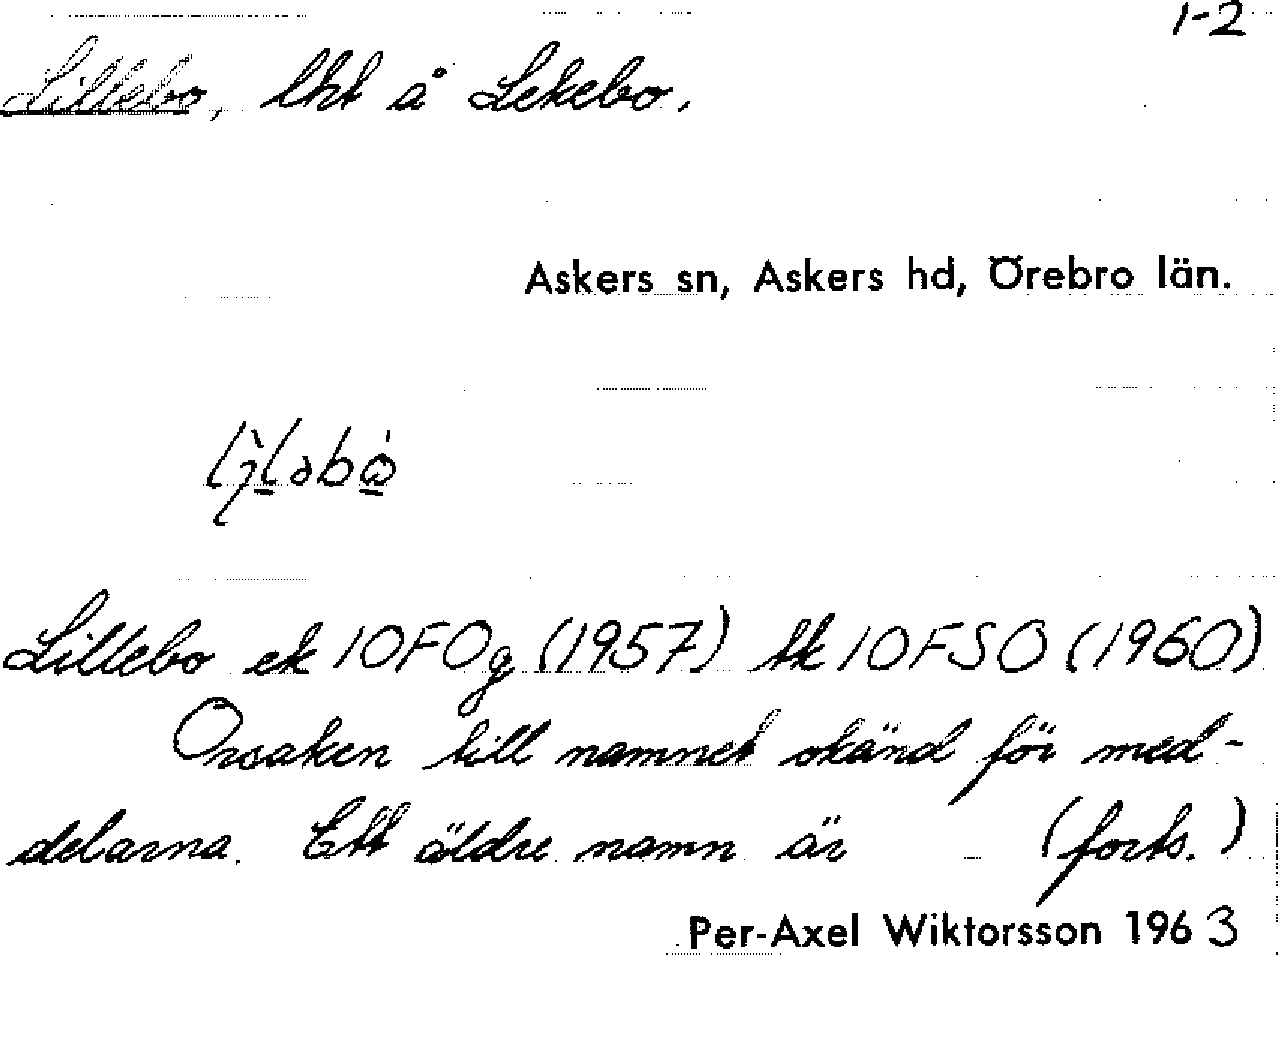 1-2
Lillebo, lht å Lekebo.
Askers sn, Askers hd, Örebro län.
Lillebo ek 10FOg (1957) tk 10FSO (1960)
Orsaken till namnet okänd för med-
delarna. Ett äldre namn är (forts.)
Per-Axel Wiktorsson 1963